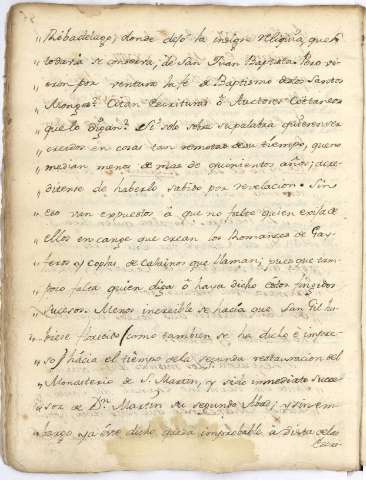 „ Ribadelago; donde dejó la insigne Reliquia, que
„ todavia se conserva, de San Juan Baptista. Pero vi-
„ eron por ventura la fe de Baptismo de los Santos
„ Monges? Citan Escrituras ó Auctores Cottaneos
„ que lo digan? Si solo sobre su palabra quieren ser
„ creidos en cosas tan remotas de su tiempo, que no
„ median menos de mas de quinientos años; acre-
„ ditense de haberlo sabido por revelacion. Sin
„ eso van expuestos á que no falte quien exija de
„ ellos en cange que crean los Romances de Gay-
„ feros y coplas de Calainos que llaman; pues que tam-
„ poco falta quien diga ó haya dicho estos fingidos
„ sucesos. Menos increible se hacia que San Gil hu-
„ biese florecido (como tambien se ha dicho é impre-
„ so) hácia el tiempo de la segunda restauracion del
„ Monasterio de S. Martin, y sido immediato suce-
„ sor de Dn. Martin su segundo Abad; y sin em-
„ bargo ya éste dicho queda improbable á vista de las
Escri-